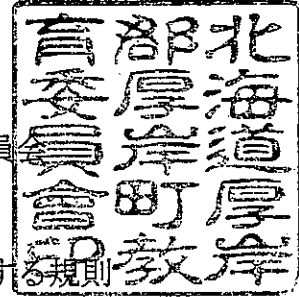 北海道厚岸
郡厚岸町教
育委員會印
員会
する規則